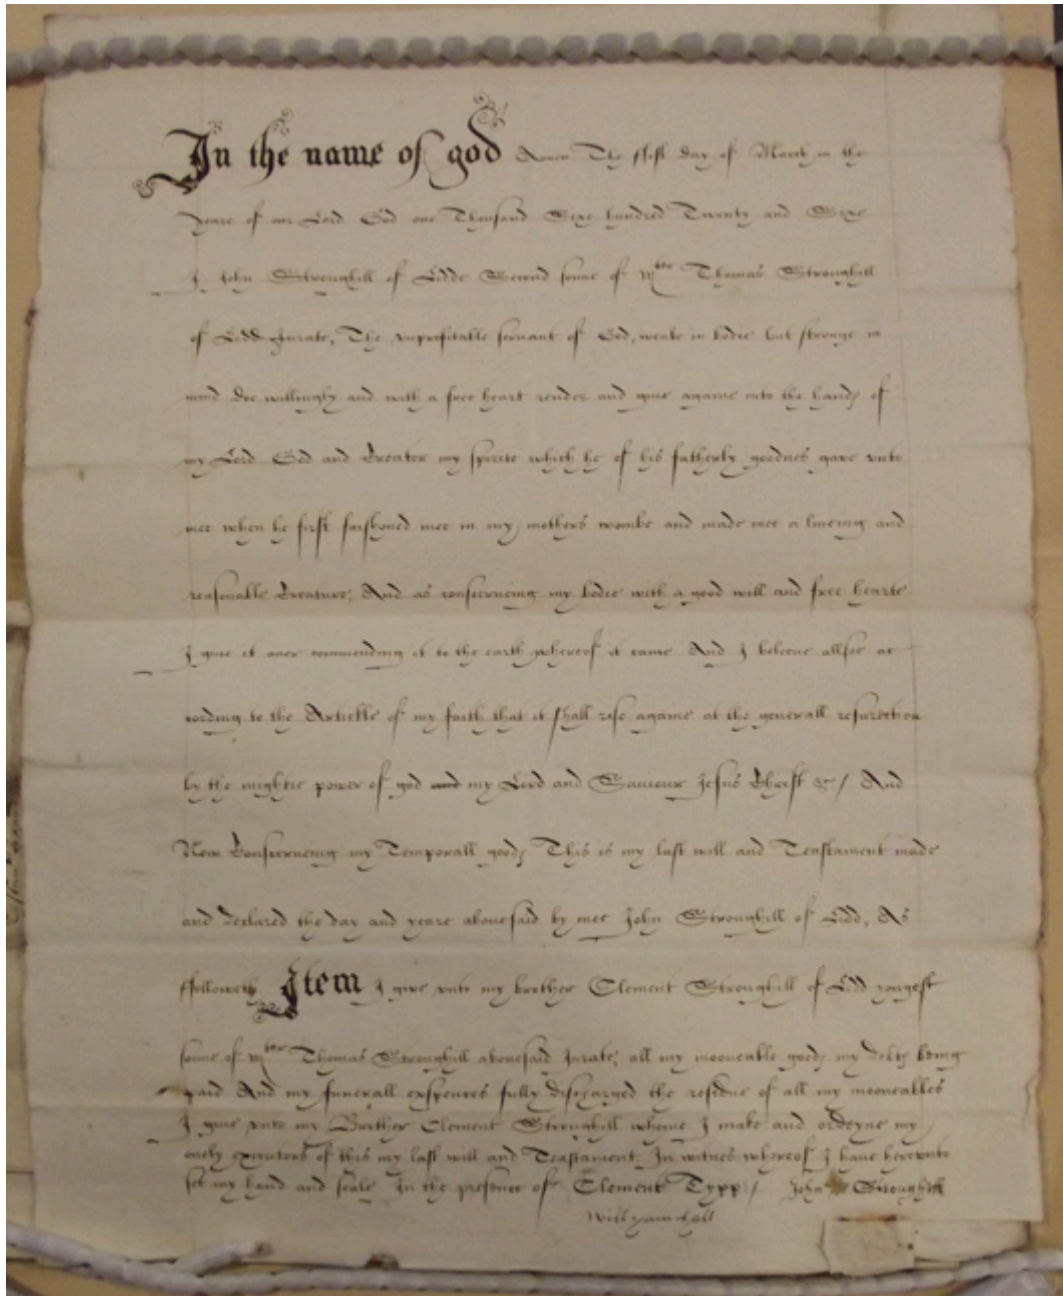 In the name of god Amen The first day of March in the
yeare of our Lord God one Thousand Sixe hundred Twenty and Sixe
I John Stronghill of Lidde Second sonne of Mter Thomas Stronghill
of Lidd Jurate, The unprofitable servant of God, weake in bodie but stronge in
mind doe willingly and with a free heart render and give againe into the hands of
my Lord God and Creator my spirite which he of his fatherly goodnes gave unto
mee when he first fashoned mee in my mothers wombe and made mee a liveing and
reasonable Creature, And as conserneing my bodie with a good will and free hearte
I give it over commending it to the earth whereof it came And I beleeve allsoe ac
cording to the Artickle of my faith that it shall rise againe at the generall resurection
by the mightie power of god and my Lord and Saviour Jesus Christ &c / And
Now Conserneing my Temporall goods This is my last will and Teastament made
and declared the day and yeare abovesaid by mee John Stronghill of Lidd, As
ffolloweth Item I give unto my brother Clement Stronghill of Lidd yongest
sonne of Mter Thomas Stronghill abovesaid Jurate, all my mooveable goods my debts being
paid And my funerall expences fully discharged the residue of all my mooveables
I give unto my Brother Clement Stronghill whome I make and ordeyne my
onely executors of this my last will and Teastament In witnes whereof I have hereunto
set my hand and seale In the presence of Clement Typp / John Stronghill
Willyam